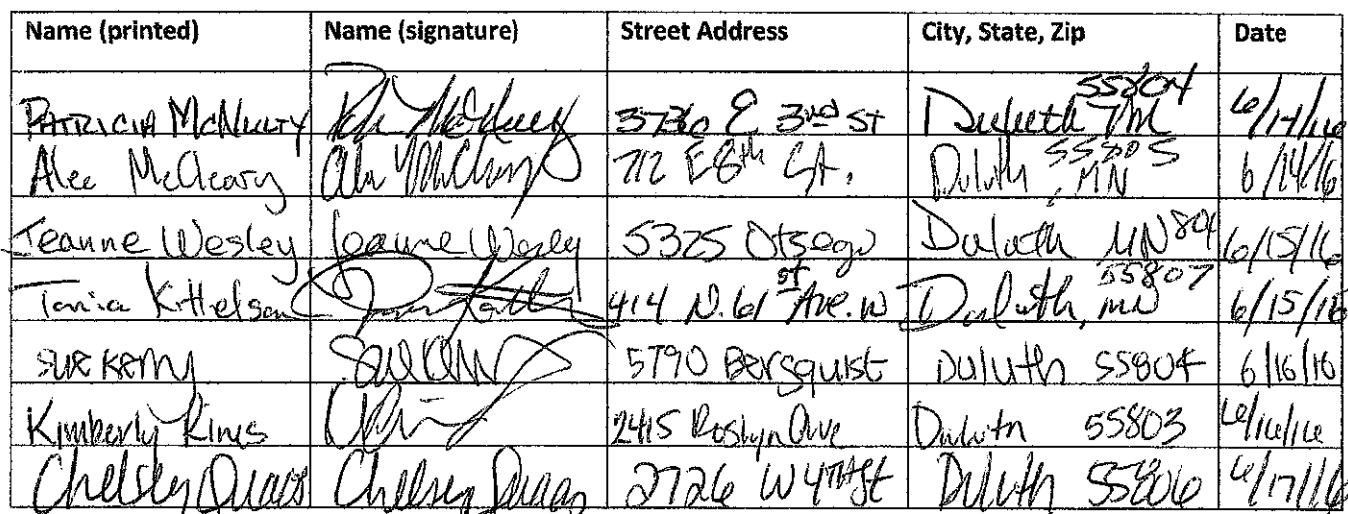 Name (printed) Name (signature) Street Address City, State, Zip Date
PATRICIA McNULTY 3736 E 3rd ST Duluth MN 55804 6/14/16
Alec McCleary 712 E 8th St. Duluth, MN 55805 6/14/16
Jeanne Wesley Jeanne Wesley 5325 Otsego Duluth MN 804 6/15/16
Tania Kittelson 414 N. 61st Ave. W Duluth, MN 55807 6/15/16
SUE KERNY 5790 Bergquist Duluth 55804 6/16/16
Kimberly Rines 2415 Roslyn Ave Duluth 55803 6/16/16
Chelsey Quaas Chelsey Quaas 2726 W 4TH St Duluth 55806 6/17/16